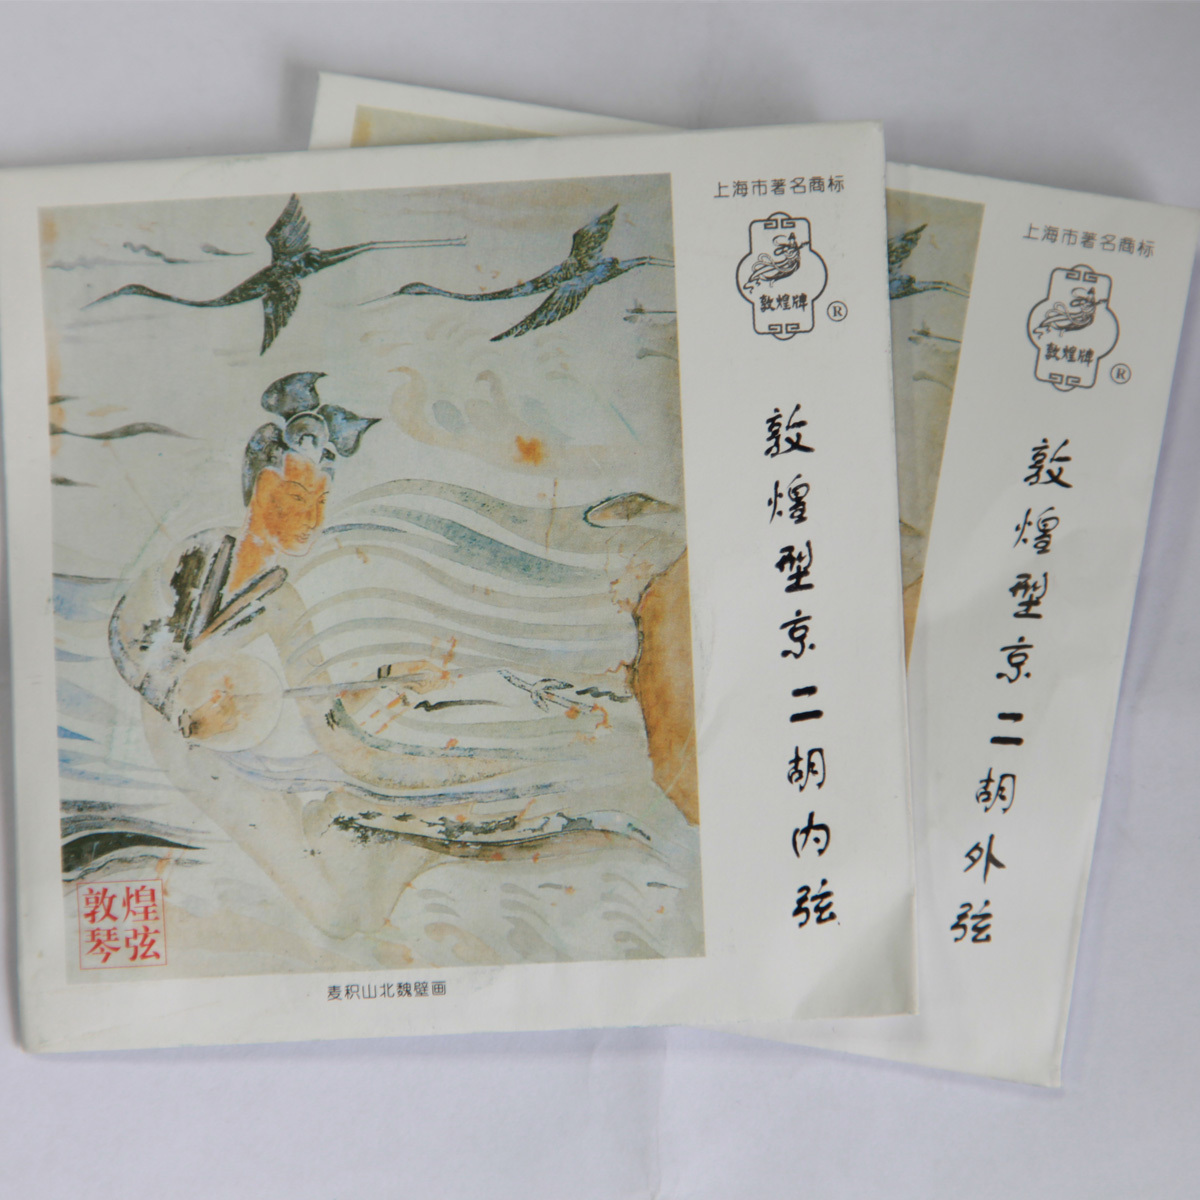 上海市著名商标
敦煌牌
®
敦煌型京二胡内弦
敦煌
琴弦
麦积山北魏壁画
上海市著名商标
敦煌牌
®
敦煌型京二胡外弦